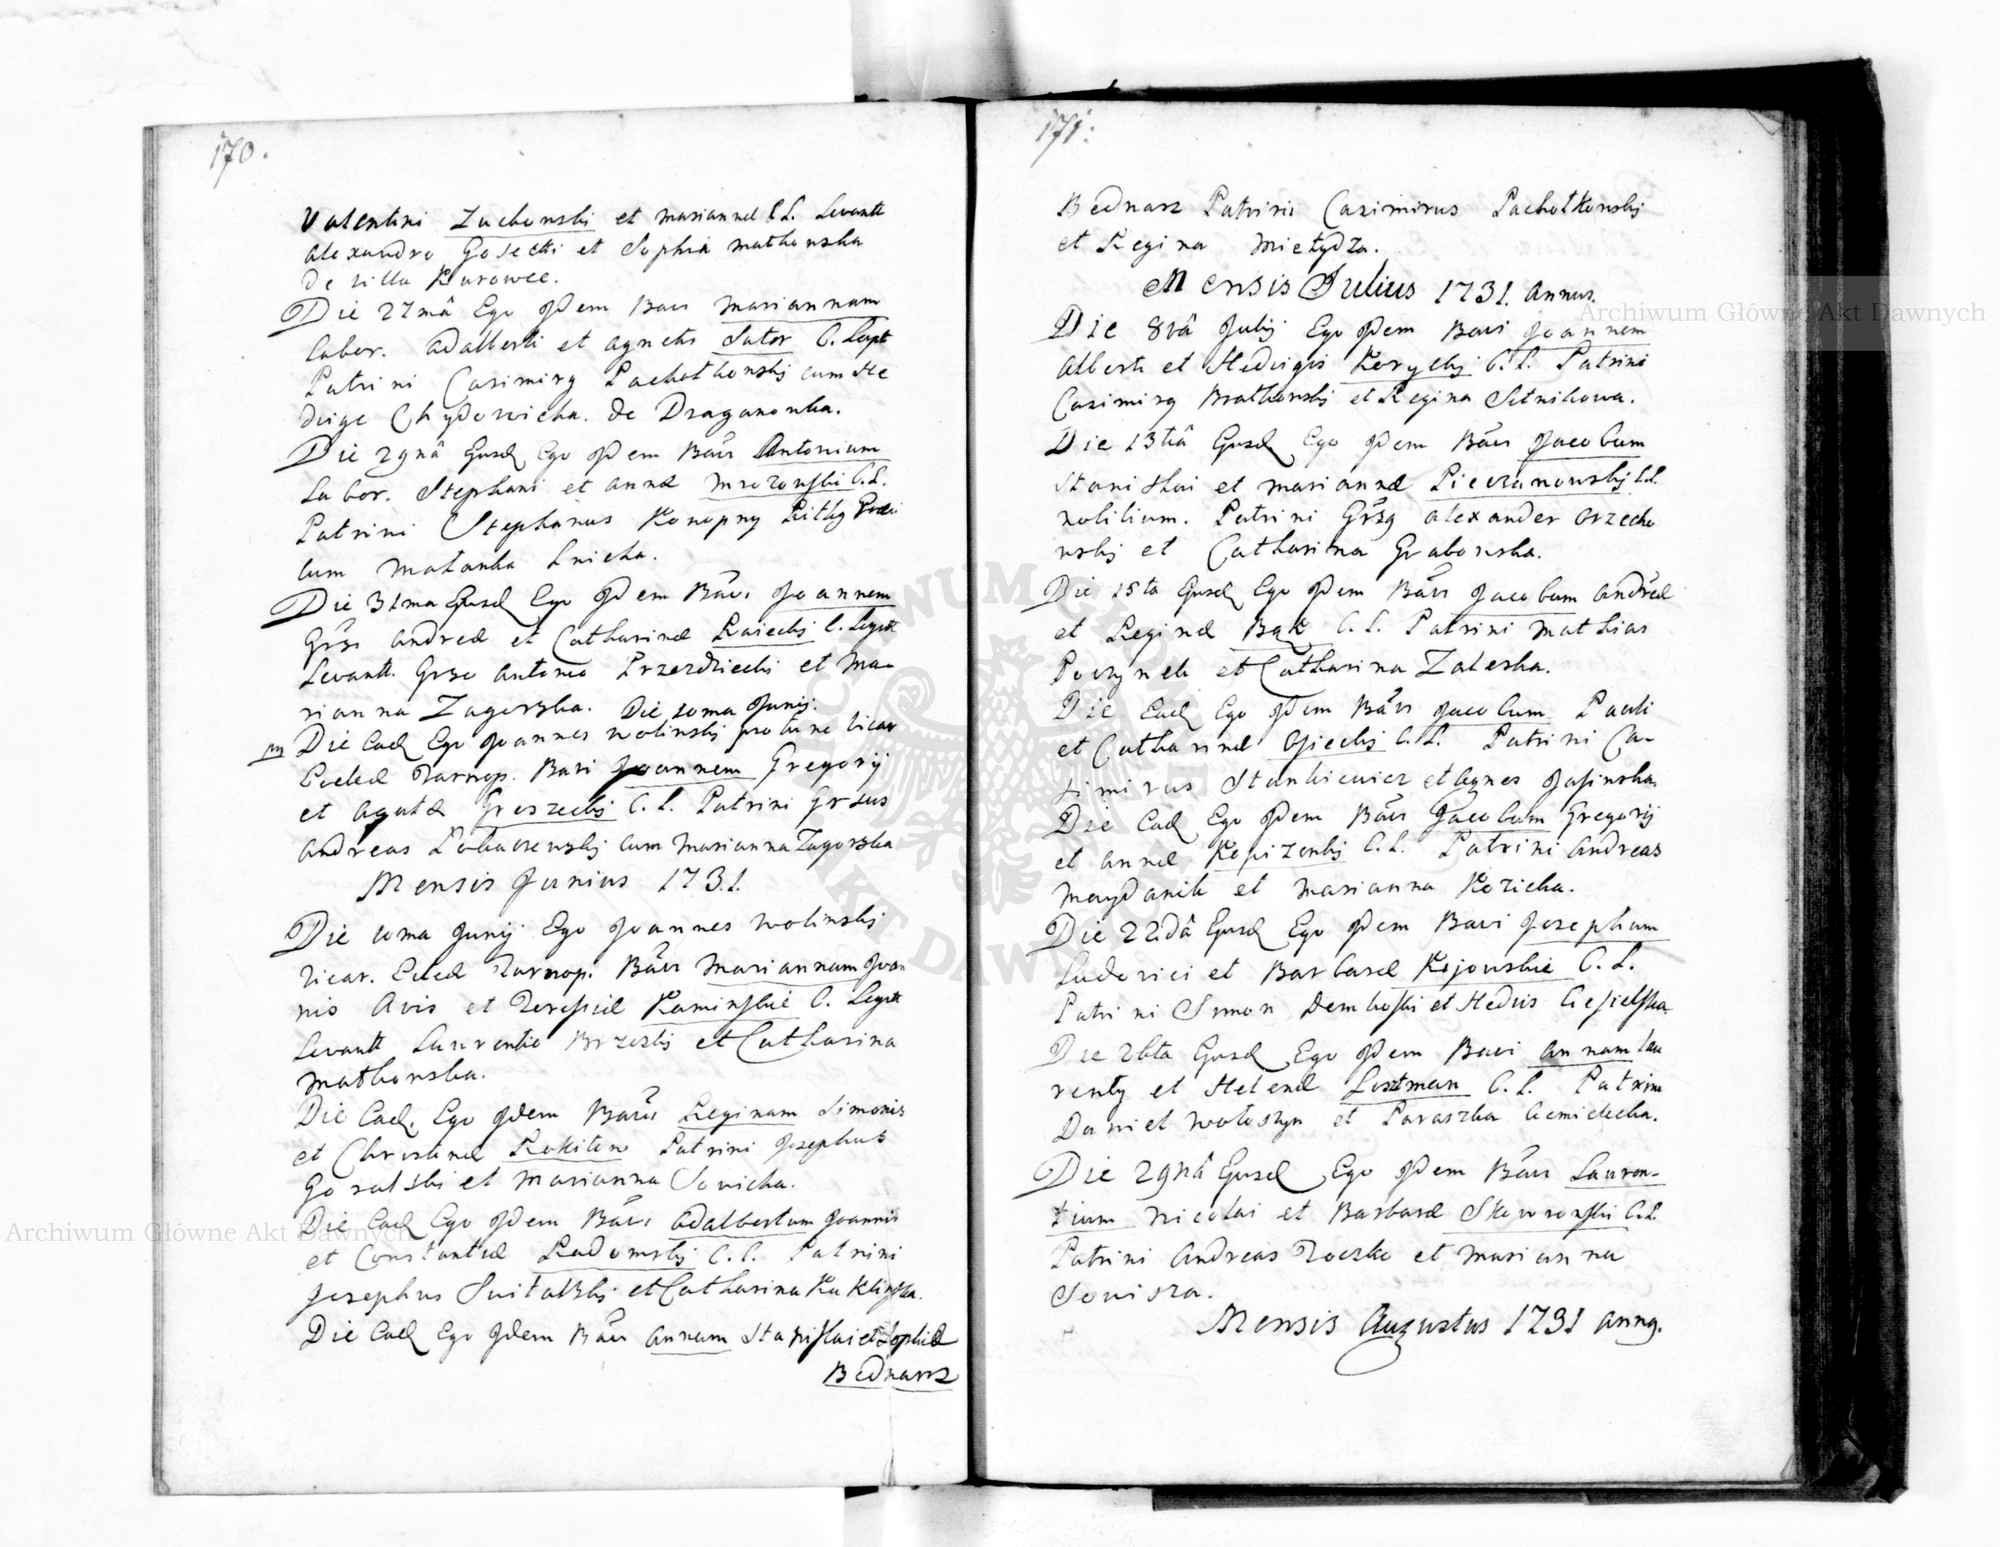 170.
Valentini Zachonskij et mariannæ C.L. Levantt
Alexandro Gosecki et Sophia mathonska
de villa Kurowce.
Die 27mâ Ego Idem Bavi mariannam
Labor. Adalberti et Agnetis Sutor C. Legit
Patrini Casimirg Pachotkonskij cum He
dvige Chydowicka. de Draganonka.
Die 29nâ Ejusd Ego Idem Bavi Antonium
Labor. Stephani et annæ mrozonski C.L.
Patrini Stephanus Konopny
cum Matanka
Die 31ma Ejusd Ego Idem Bavi Joannem
Grsi Andreæ et Catharinæ Raieckij C. Legitt
Levantt. Grso Antonio Przerdzieckij et Ma-
rianna Zagorska. Die 10ma Junij.
Die Ead Ego Joannes Wolinskij pro tunc Vicar
Eccleæ Tarnop. Bavi Joannem Gregorij
et Agatæ Groszeckij C. L. Patrini Grsus
Andreas Lobaczewskij cum Marianna Zagorska
Mensis Junius 1731.
Die 10ma Junij Ego Joannes Wolinskij
Vicar. Eccleæ Tarnop. Bavi Mariannam Joan
nis Avis et Teresiæ Kaminskie C. Legitt
Levantt Laurentio Brzeskij et Catharina
Mathonska.
Die Ead. Ego Idem Bavi Reginam Simonis
et Christinæ Rokiten Patrini Josephus
Goralski et Marianna Sovicka.
Die Ead Ego Idem Bavi Adalbertum Joannis
et Constantiæ Radomskij C.L. Patrini
Josephus Switalskij et Catharina Kuklinska.
Die Ead Ego Idem Bavi Annam Stanislai et Sophiæ
Bednarz
171.
Bednarz Patrini Casimirus Pachotkonskij
et Regina Mietydza.
Mensis Julius 1731. Annus.
Die 8vâ Julij Ego Idem Bavi Joannem
Alberti et Hedvigis Koryckij C.L. Patrini
Casimirg Bratkonskij et Regina Sitnikowa.
Die 13tiâ Ejusd Ego Idem Bavi Jacobum
Stanislai et Mariannæ Pieczanowskij C.L.
Nobilium. Patrini Grsg Alexander Orzecho
wskij et Catharina Grabonska.
Die 15ta Ejusd Ego Idem Bavi Jacobum Andreæ
et Reginæ Bąk C. L. Patrini Mathias
Poczynek et Catharina Zaleska.
Die Ead Ego Idem Bavi Jacobum Pauli
et Catharinæ Osieckij C.L. Patrini Ca-
simirus Stankiewicz et Agnes Jasinska.
Die Ead Ego Idem Bavi Jacobum Gregorij
et Annæ Kopizonkij C.L. Patrini Andreas
Maydanik et Marianna Kozicka.
Die 22dâ Ejusd Ego Idem Bavi Josephum
Ludovici et Barbaræ Kijowskie C. L.
Patrini Simon Demboski et Hedvis Ciesielska
Die 26ta Ejusd Ego Idem Bavi Annam Lau
rentij et Helenæ Lostman C. L. Patrini
Daniel Wołoszyn et Paraszka
Die 29nâ Ejusd Ego Idem Bavi Lauren-
tium Nicolai et Barbaræ Skowronski C.L.
Patrini Andreas Troczko et Marianna
Sovisza.
Mensis Augustus 1731 anng.
Archiwum Główne Akt Dawnych
Archiwum Główne Akt Dawnych
ARCHIWUM GŁÓWNE AKT DAWNYCH